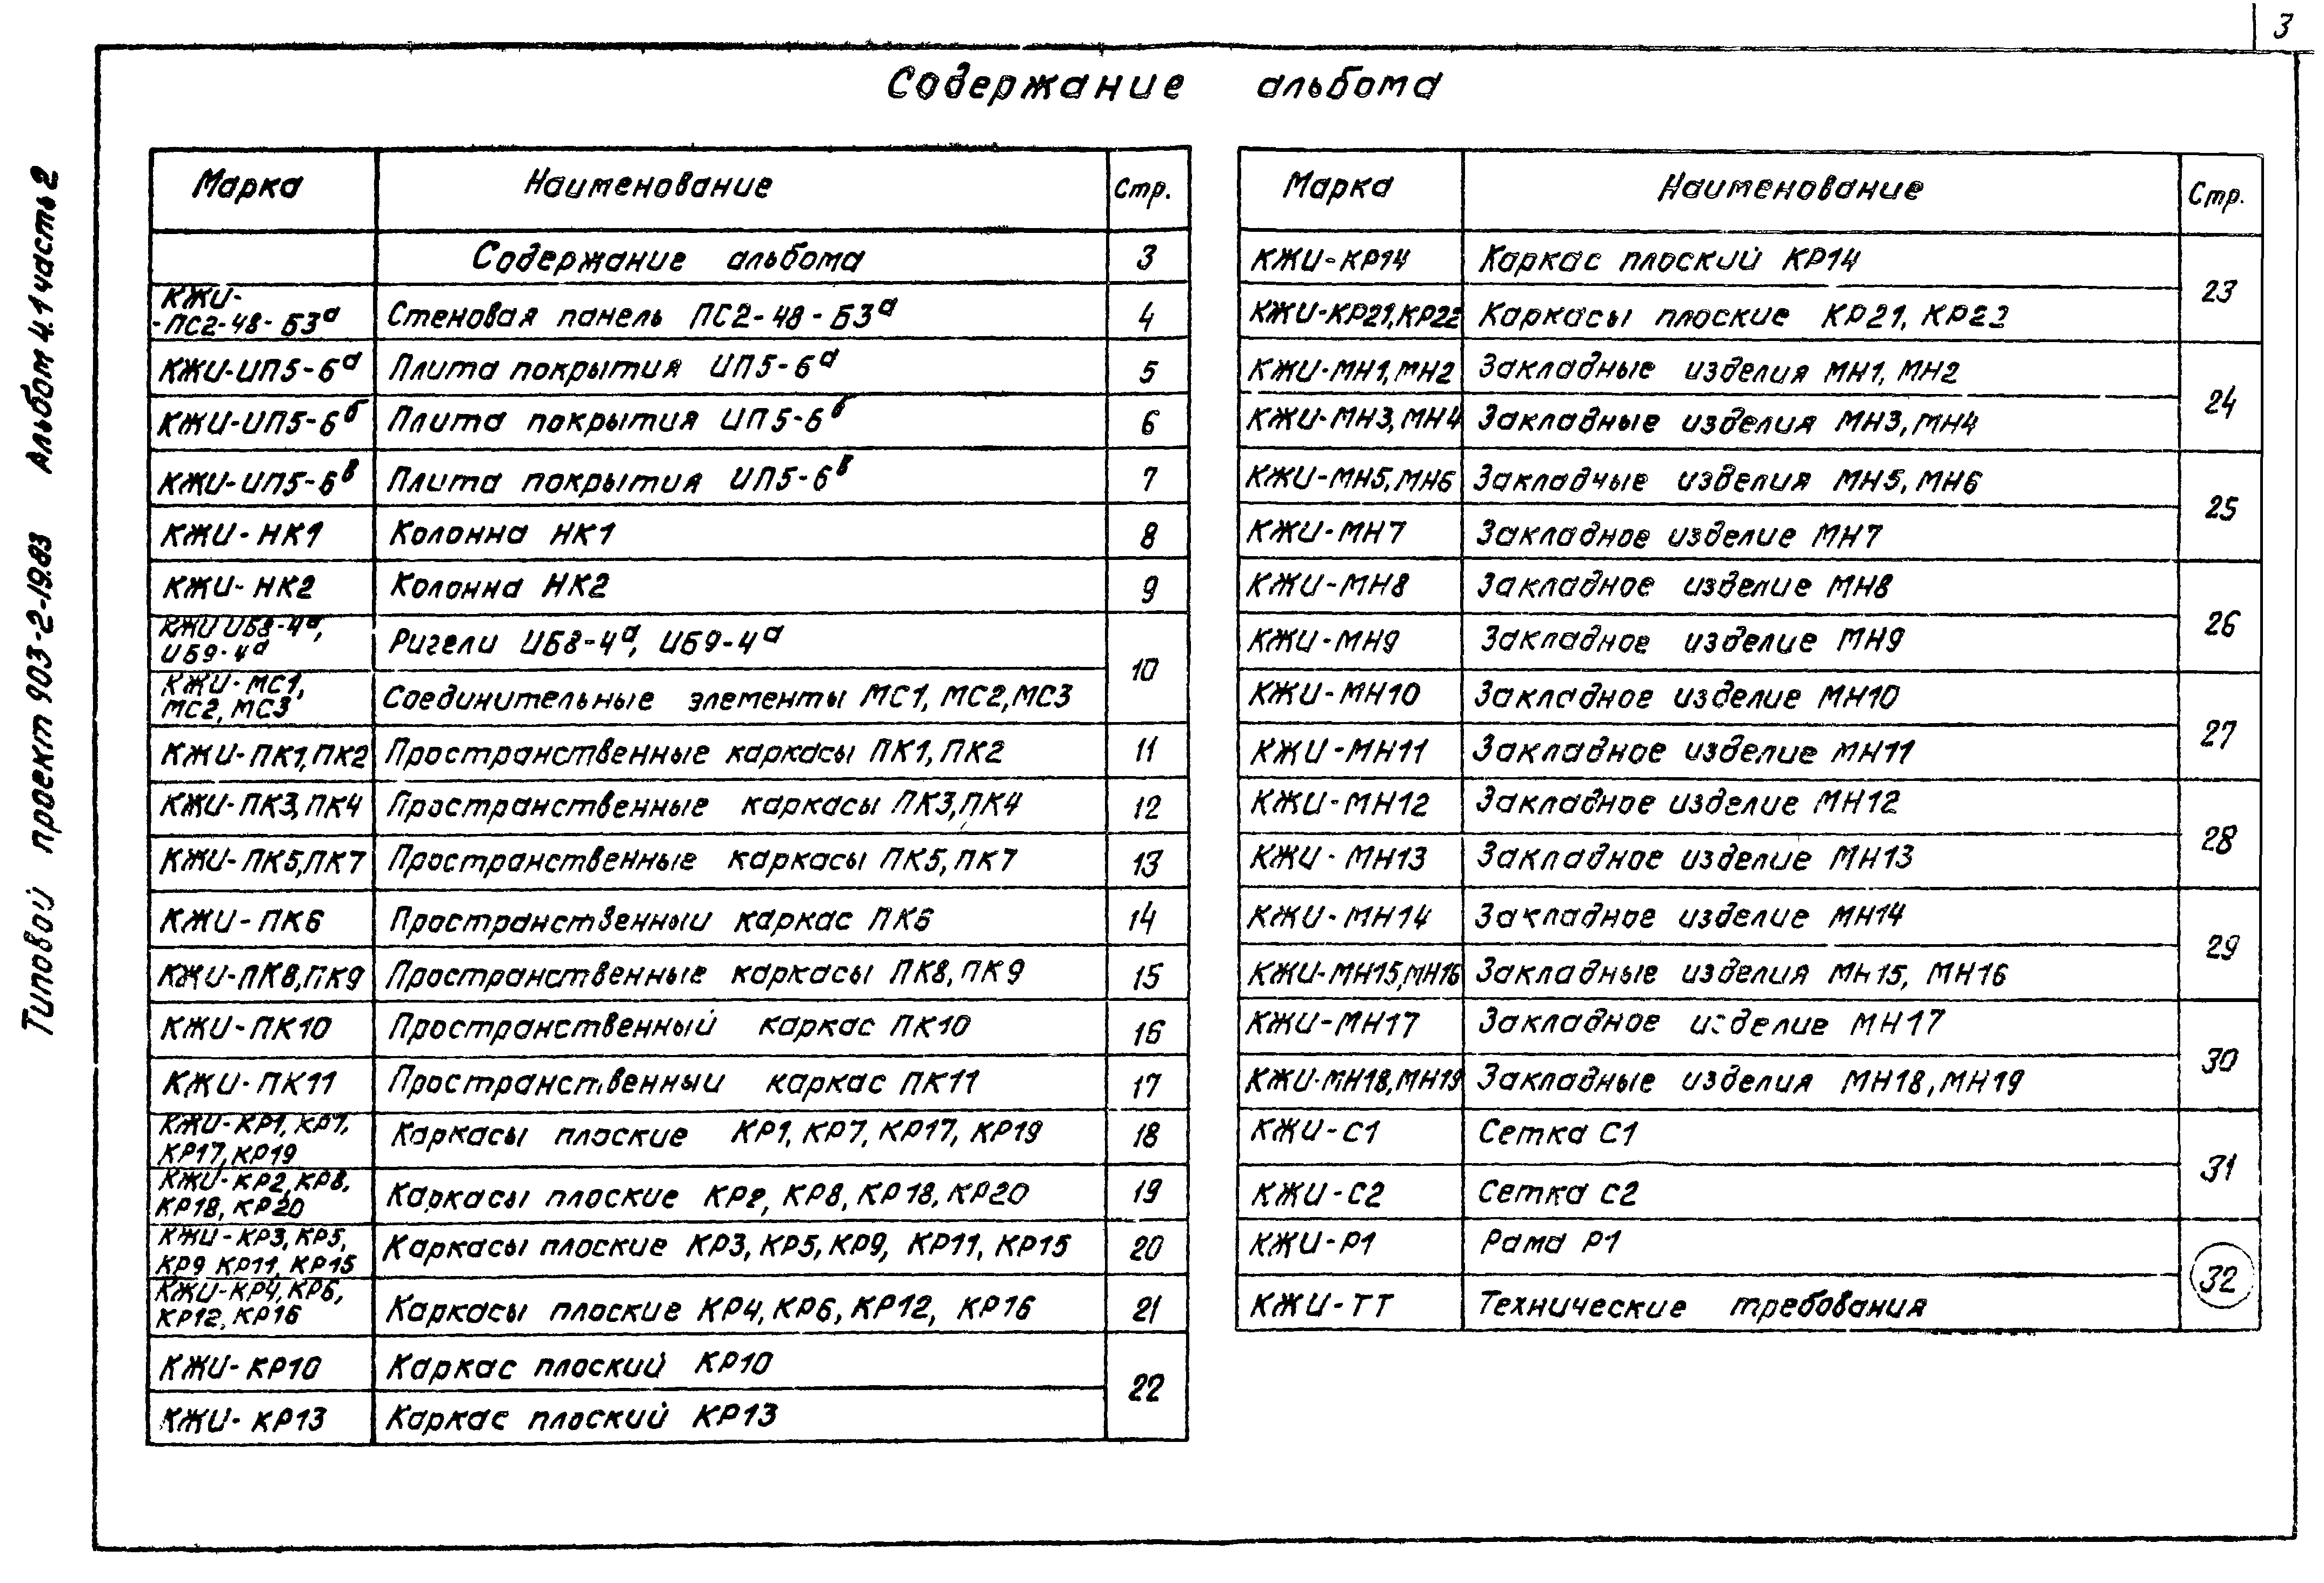 3
Содержание альбома
Типовой проект 903-2-19.83 Альбом 4.1 часть 2
Марка Наименование Стр.
Содержание альбома 3
КЖИ-
-ПС2-48-Б3а Стеновая панель ПС2-48-Б3а 4
КЖИ-ИП5-6а Плита покрытия ИП5-6а 5
КЖИ-ИП5-6б Плита покрытия ИП5-6б 6
КЖИ-ИП5-6в Плита покрытия ИП5-6в 7
КЖИ-НК1 Колонна НК1 8
КЖИ-НК2 Колонна НК2 9
КЖИ ИБ8-4а,
ИБ9-4а Ригели ИБ8-4а, ИБ9-4а
10
КЖИ-МС1,
МС2, МС3 Соединительные элементы МС1, МС2, МС3
КЖИ-ПК1, ПК2 Пространственные каркасы ПК1, ПК2 11
КЖИ-ПК3, ПК4 Пространственные каркасы ПК3, ПК4 12
КЖИ-ПК5, ПК7 Пространственные каркасы ПК5, ПК7 13
КЖИ-ПК6 Пространственныи каркас ПК6 14
КЖИ-ПК8, ПК9 Пространственные каркасы ПК8, ПК9 15
КЖИ-ПК10 Пространственный каркас ПК10 16
КЖИ-ПК11 Пространственныи каркас ПК11 17
КЖИ-КР1, КР7,
КР17, КР19 Каркасы плоские КР1, КР7, КР17, КР19 18
КЖИ-КР2, КР8,
КР18, КР20 Каркасы плоские КР2, КР8, КР18, КР20 19
КЖИ-КР3, КР5,
КР9 КР11, КР15 Каркасы плоские КР3, КР5, КР9, КР11, КР15 20
КЖИ-КР4, КР6,
КР12, КР16 Каркасы плоские КР4, КР6, КР12, КР16 21
КЖИ-КР10 Каркас плоский КР10
22
КЖИ-КР13 Каркас плоский КР13
Марка Наименование Стр.
КЖИ-КР14 Каркас плоский КР14
23
КЖИ-КР21, КР22 Каркасы плоские КР21, КР22
КЖИ-МН1, МН2 Закладные изделия МН1, МН2
24
КЖИ-МН3, МН4 Закладные изделия МН3, МН4
КЖИ-МН5, МН6 Закладные изделия МН5, МН6
25
КЖИ-МН7 Закладное изделие МН7
КЖИ-МН8 Закладное изделие МН8
26
КЖИ-МН9 Закладное изделие МН9
КЖИ-МН10 Закладное изделие МН10
27
КЖИ-МН11 Закладное изделие МН11
КЖИ-МН12 Закладное изделие МН12
28
КЖИ-МН13 Закладное изделие МН13
КЖИ-МН14 Закладное изделие МН14
29
КЖИ-МН15, МН16 Закладные изделия МН15, МН16
КЖИ-МН17 Закладное изделие МН17
30
КЖИ-МН18, МН19 Закладные изделия МН18, МН19
КЖИ-С1 Сетка С1
31
КЖИ-С2 Сетка С2
КЖИ-Р1 Рама Р1
32
КЖИ-ТТ Технические требования